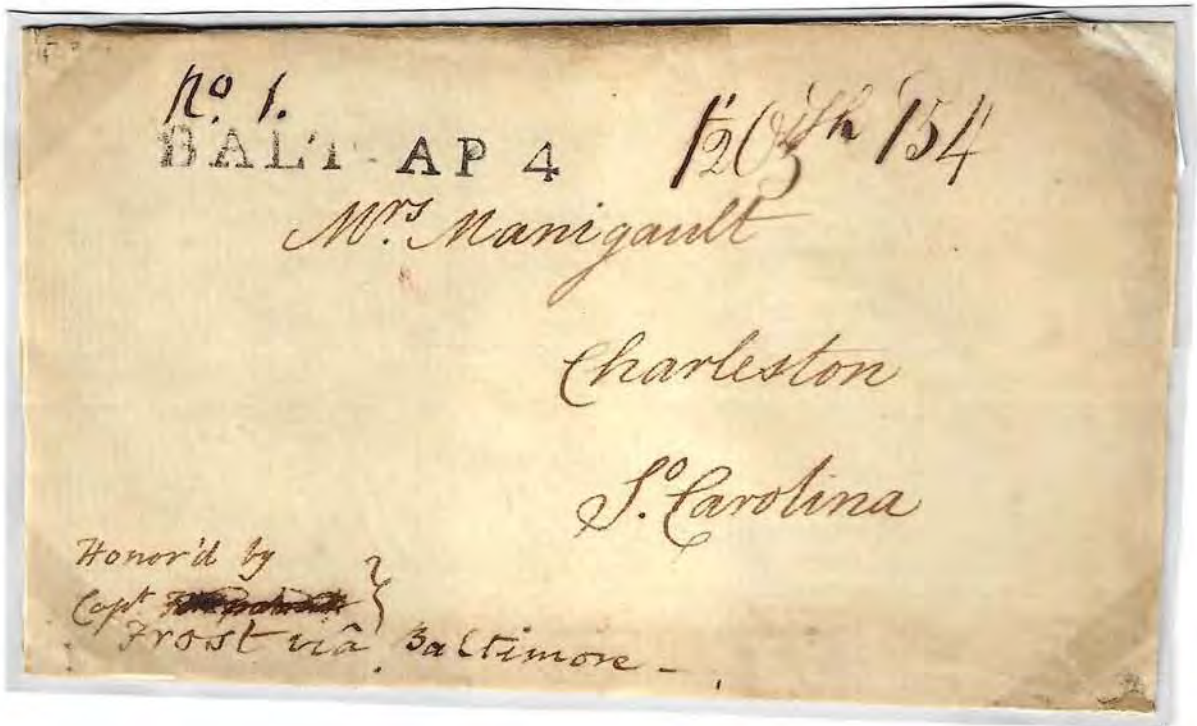 No. 1.
BALT AP 4
Mrs. Manigault
Charleston
So. Carolina
Honor'd by
Capt
Frost viâ Baltimore -